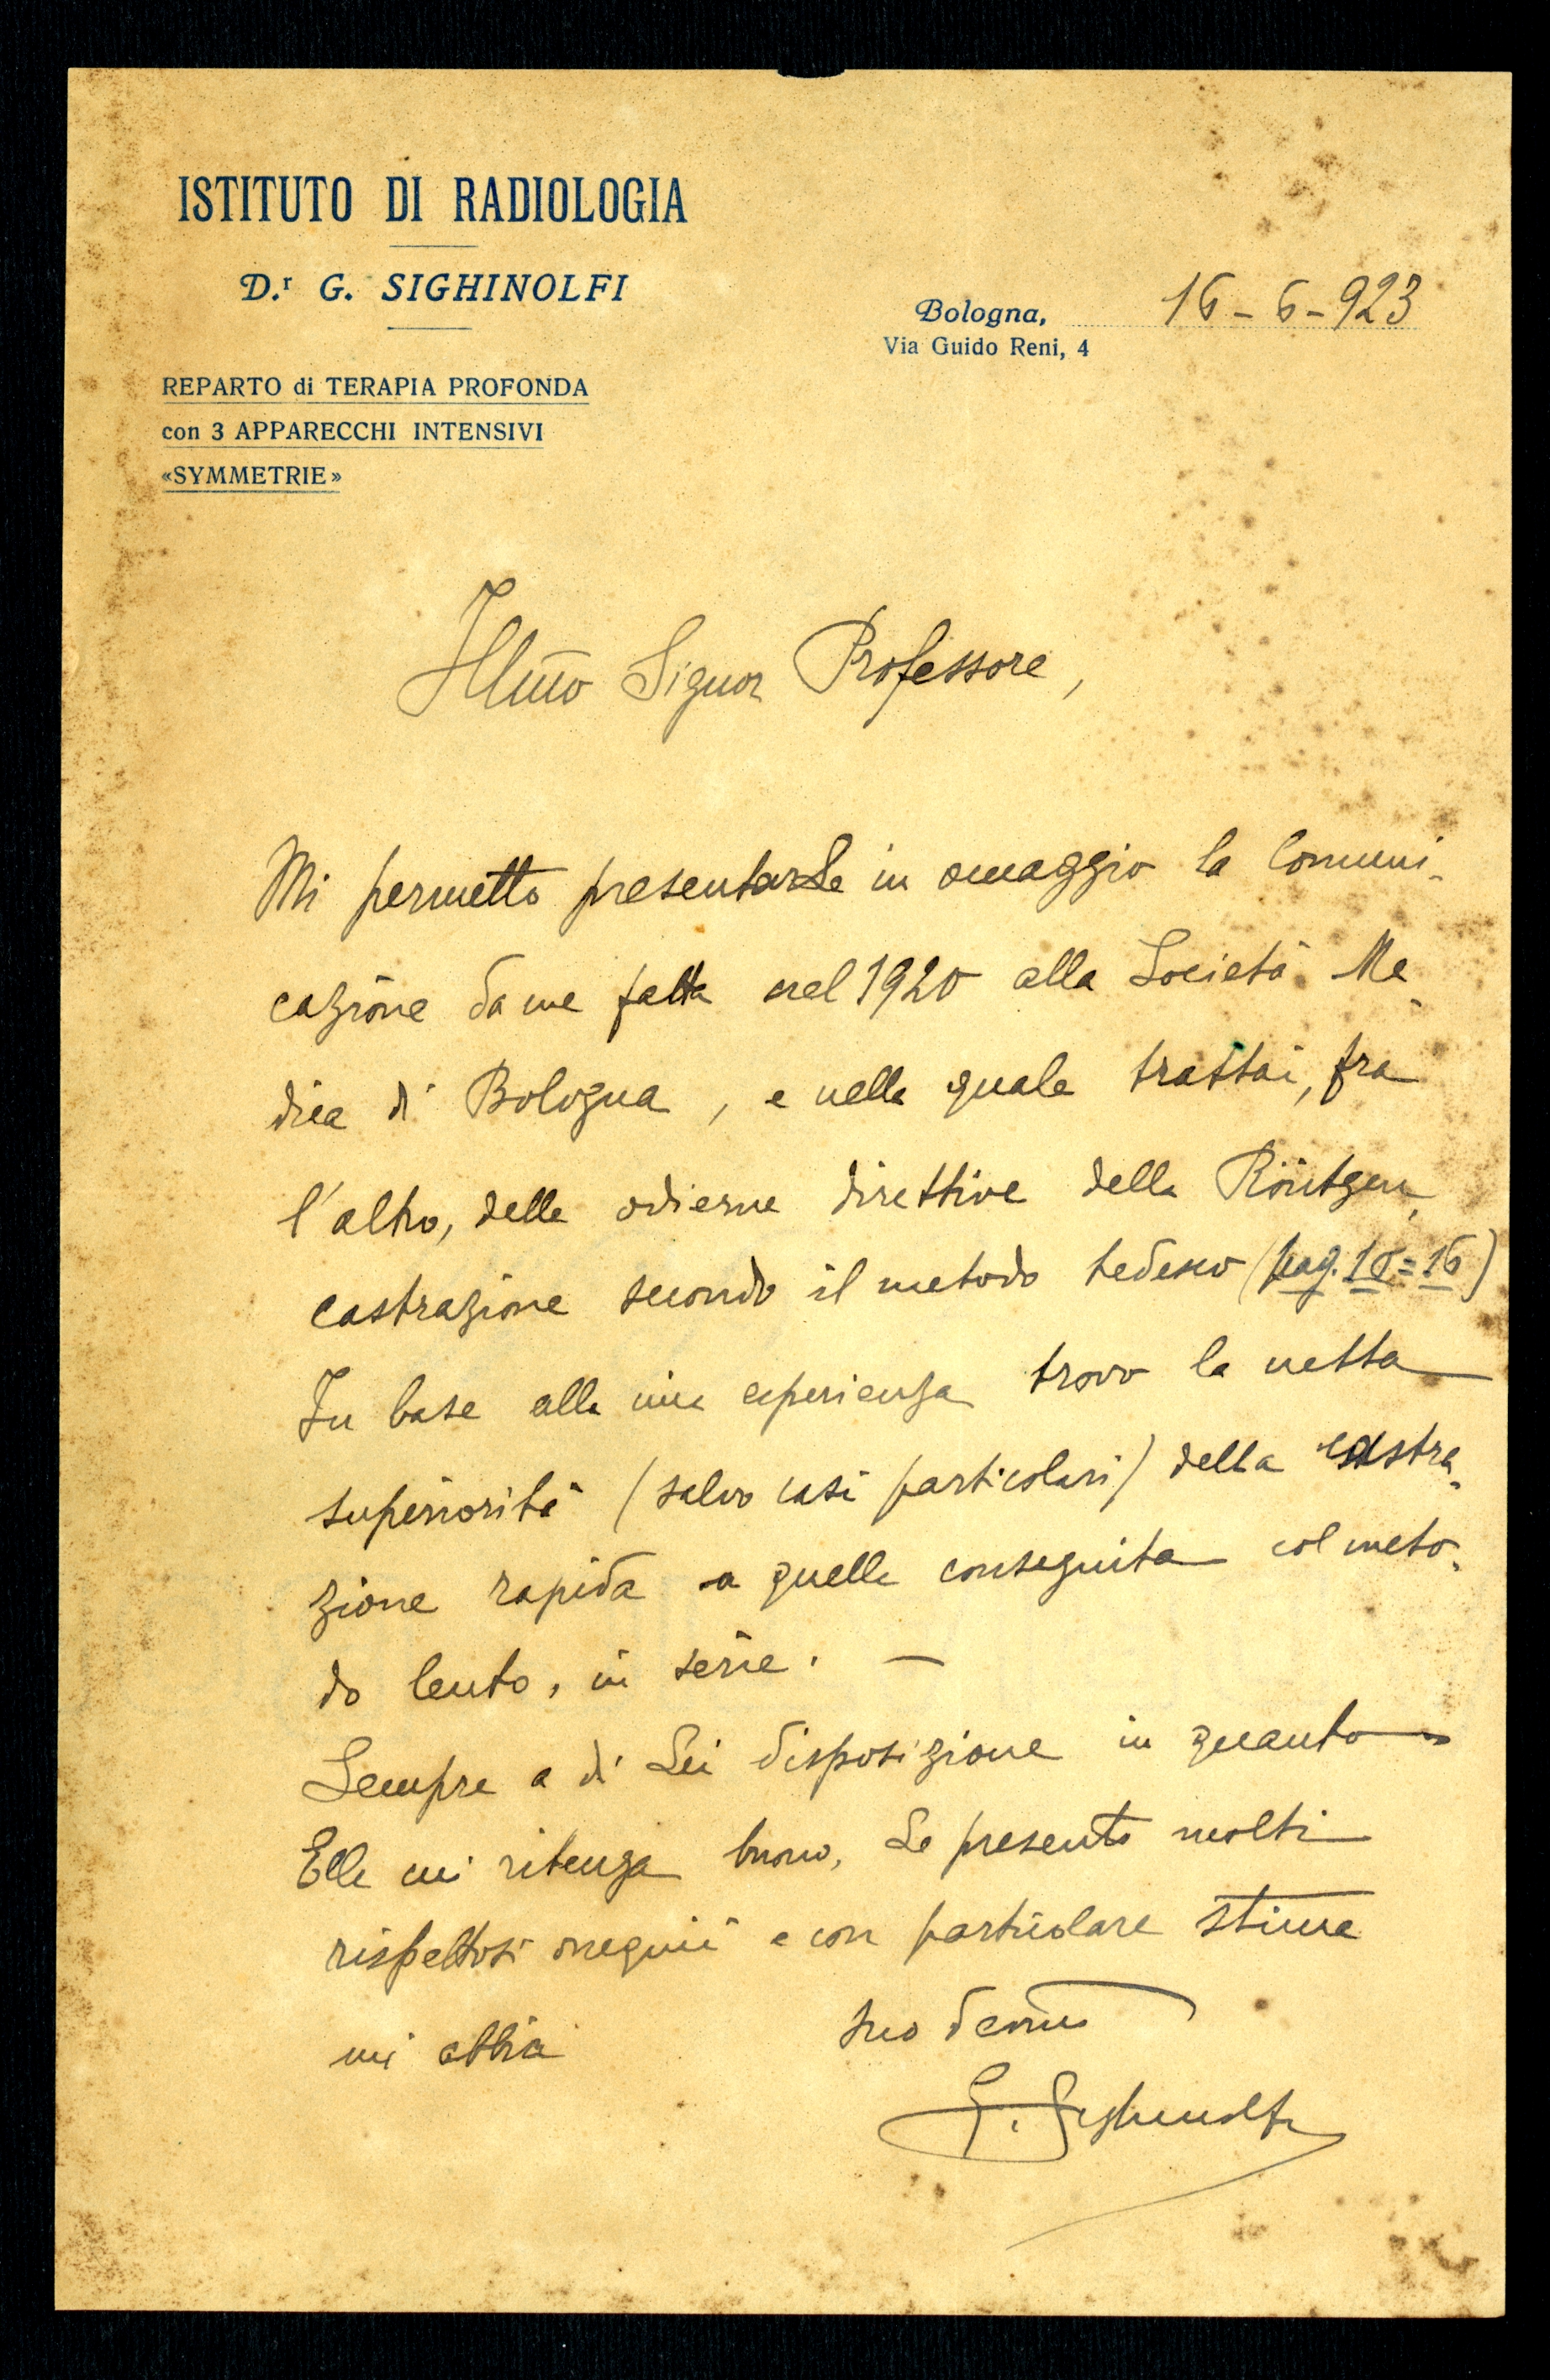 ISTITUTO DI RADIOLOGIA
D.r G. SIGHINOLFI
REPARTO di TERAPIA PROFONDA
con 3 APPARECCHI INTENSIVI
«SYMMETRIE»
Bologna, 16-6-923
Via Guido Reni, 4
Illmo Signor Professore,
Mi permetto presentarLe in omaggio la Comuni-
cazione da me fatta nel 1920 alla Società Me-
dica di Bologna, e nella quale trattai, fra
l'altro, delle odierne direttive della Röntgen-
castrazione secondo il metodo tedesco (pag. = 16)
In base alla mia esperienza trovo la netta
superiorità (salvo casi particolari) della castra-
zione rapida a quella conseguita col meto-
do lento, in serie. —
Sempre a di Lei disposizione in quanto
Ella mi ritenga buono, Le presento molti
rispettosi ossequii e con particolare stima
mi abbia suo devmo
G. Sighinolfi